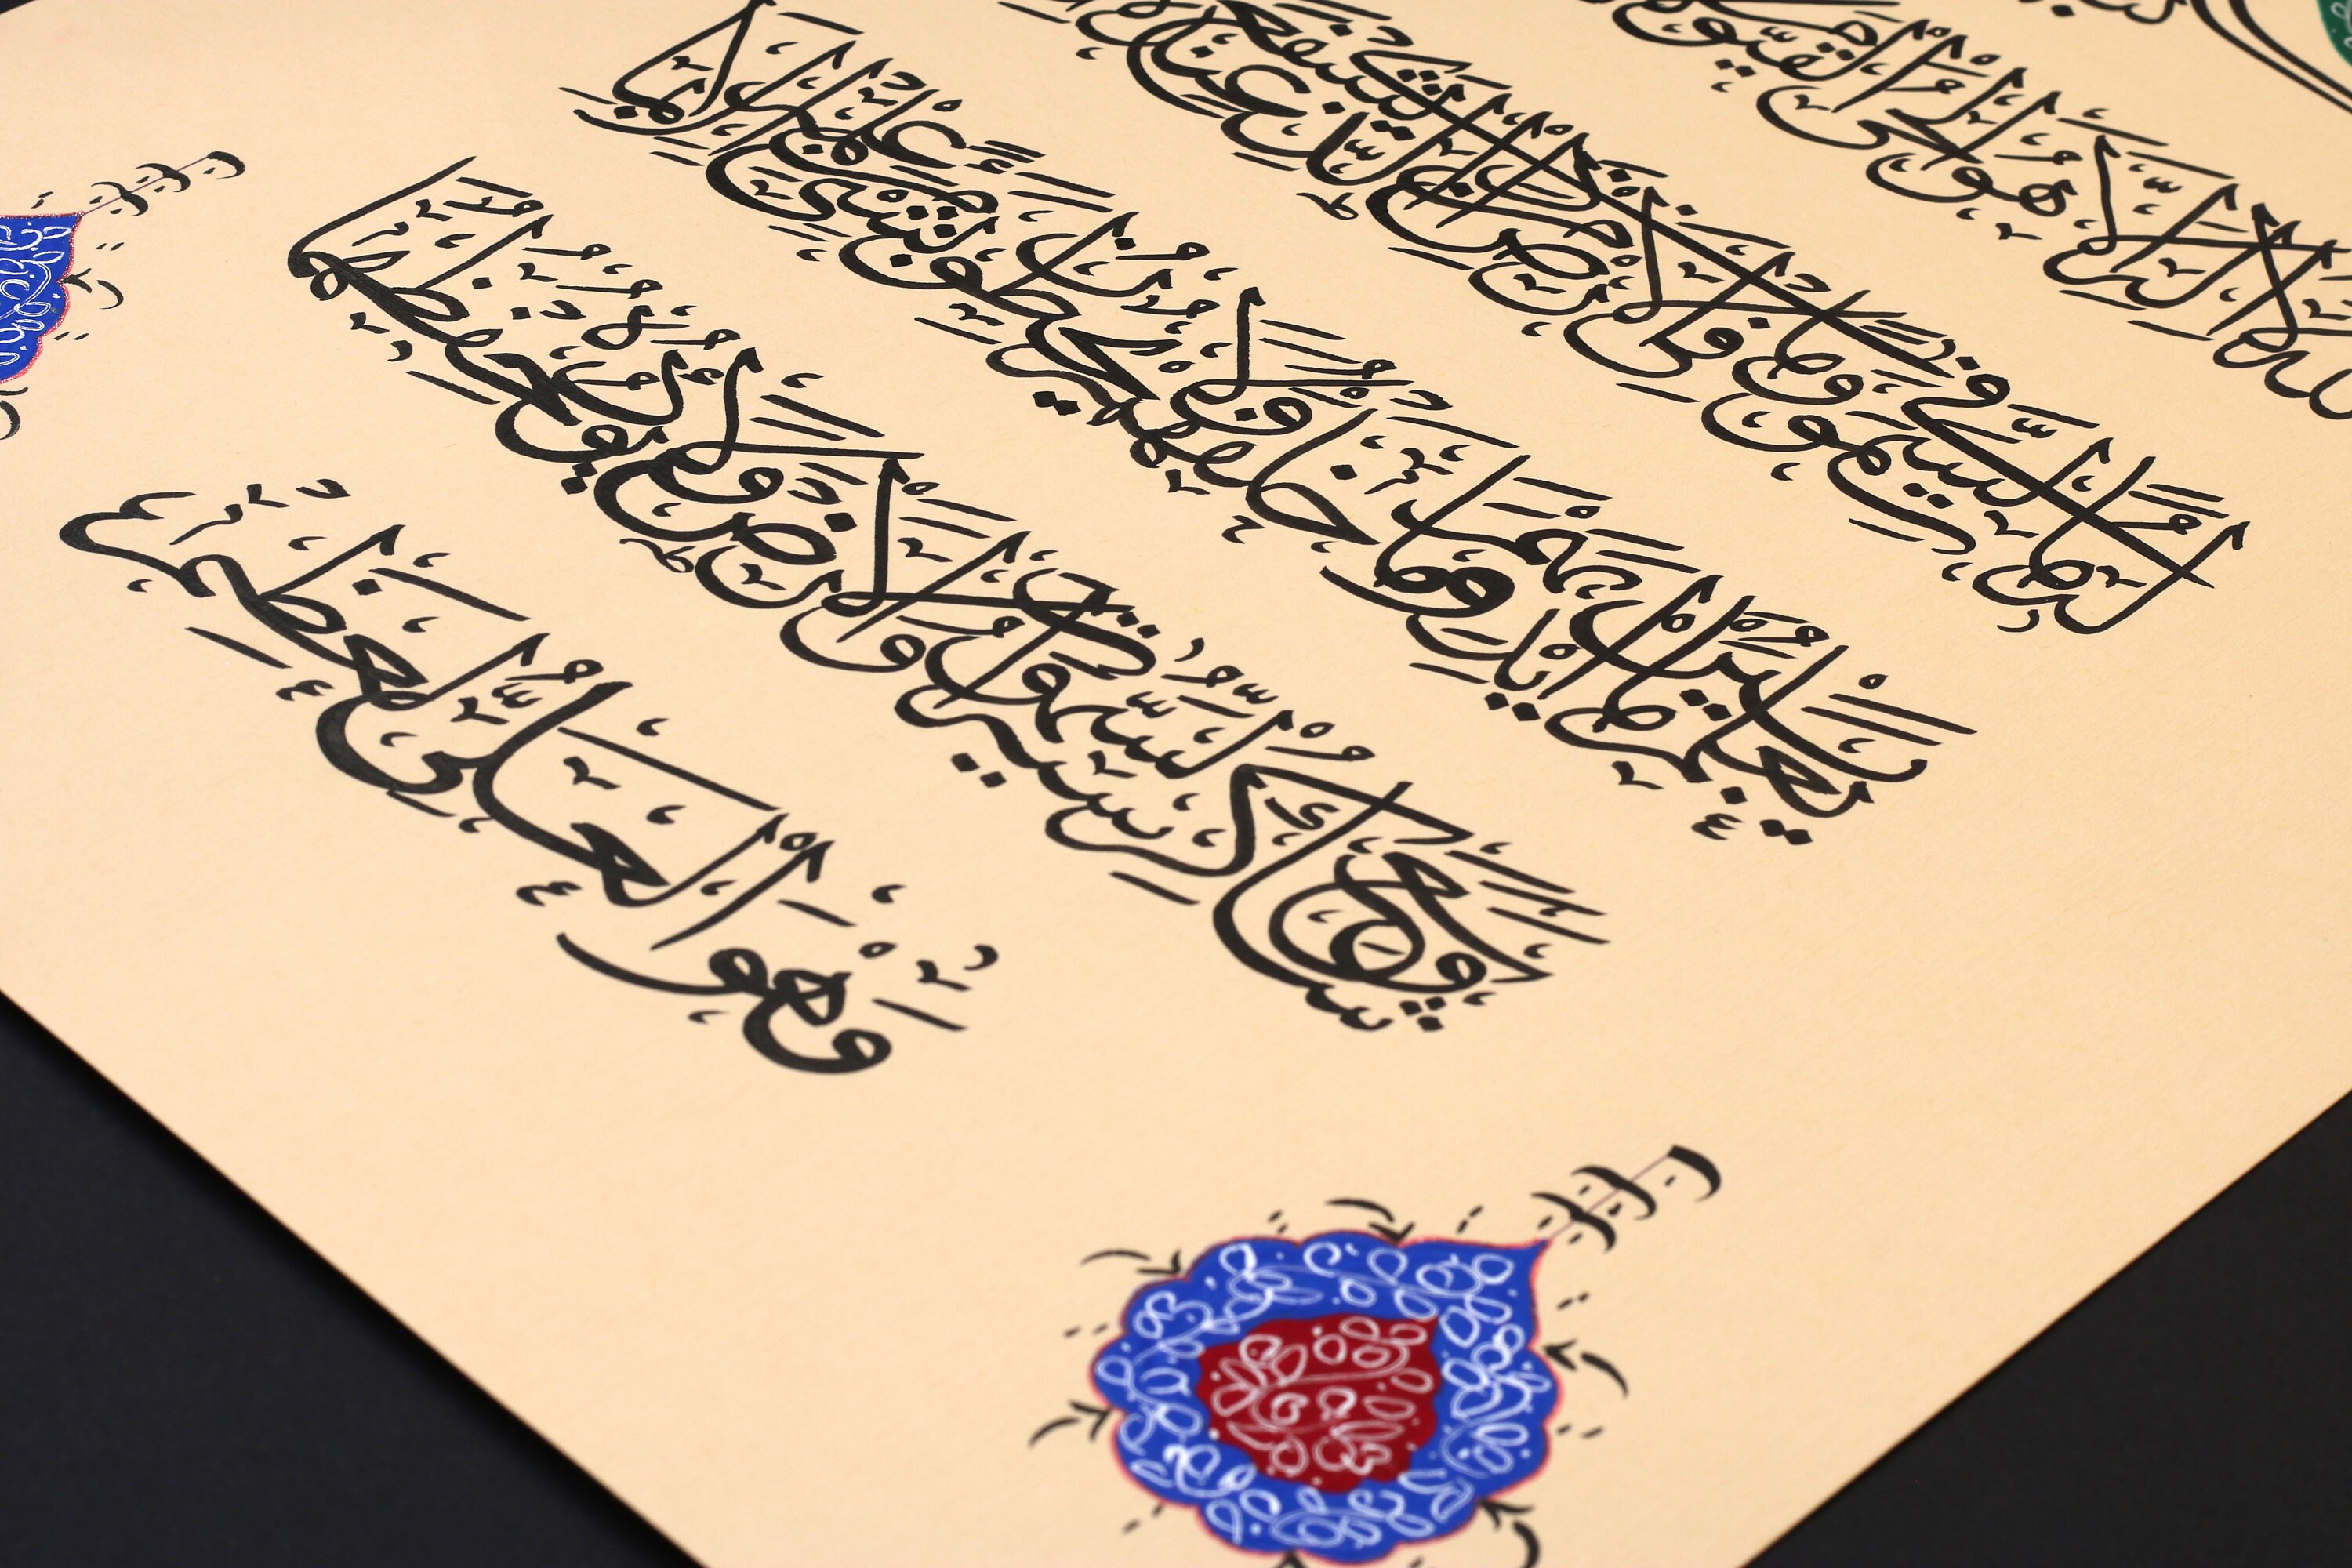 اللَّهُ لَا إِلَٰهَ إِلَّا هُوَ الْحَيُّ الْقَيُّومُ
لَهُ مَا فِي السَّمَٰوَٰتِ وَمَا فِي الْأَرْضِ مَنْ ذَا الَّذِي يَشْفَعُ عِنْدَهُ
يَعْلَمُ مَا بَيْنَ أَيْدِيهِمْ وَمَا خَلْفَهُمْ وَلَا يُحِيطُونَ بِشَيْءٍ مِنْ عِلْمِهِ إِلَّا بِمَا
شَاءَ وَسِعَ كُرْسِيُّهُ السَّمَٰوَٰتِ وَالْأَرْضَ وَلَا يَئُودُهُ حِفْظُهُمَا
وَهُوَ الْعَلِيُّ الْعَظِيمُ